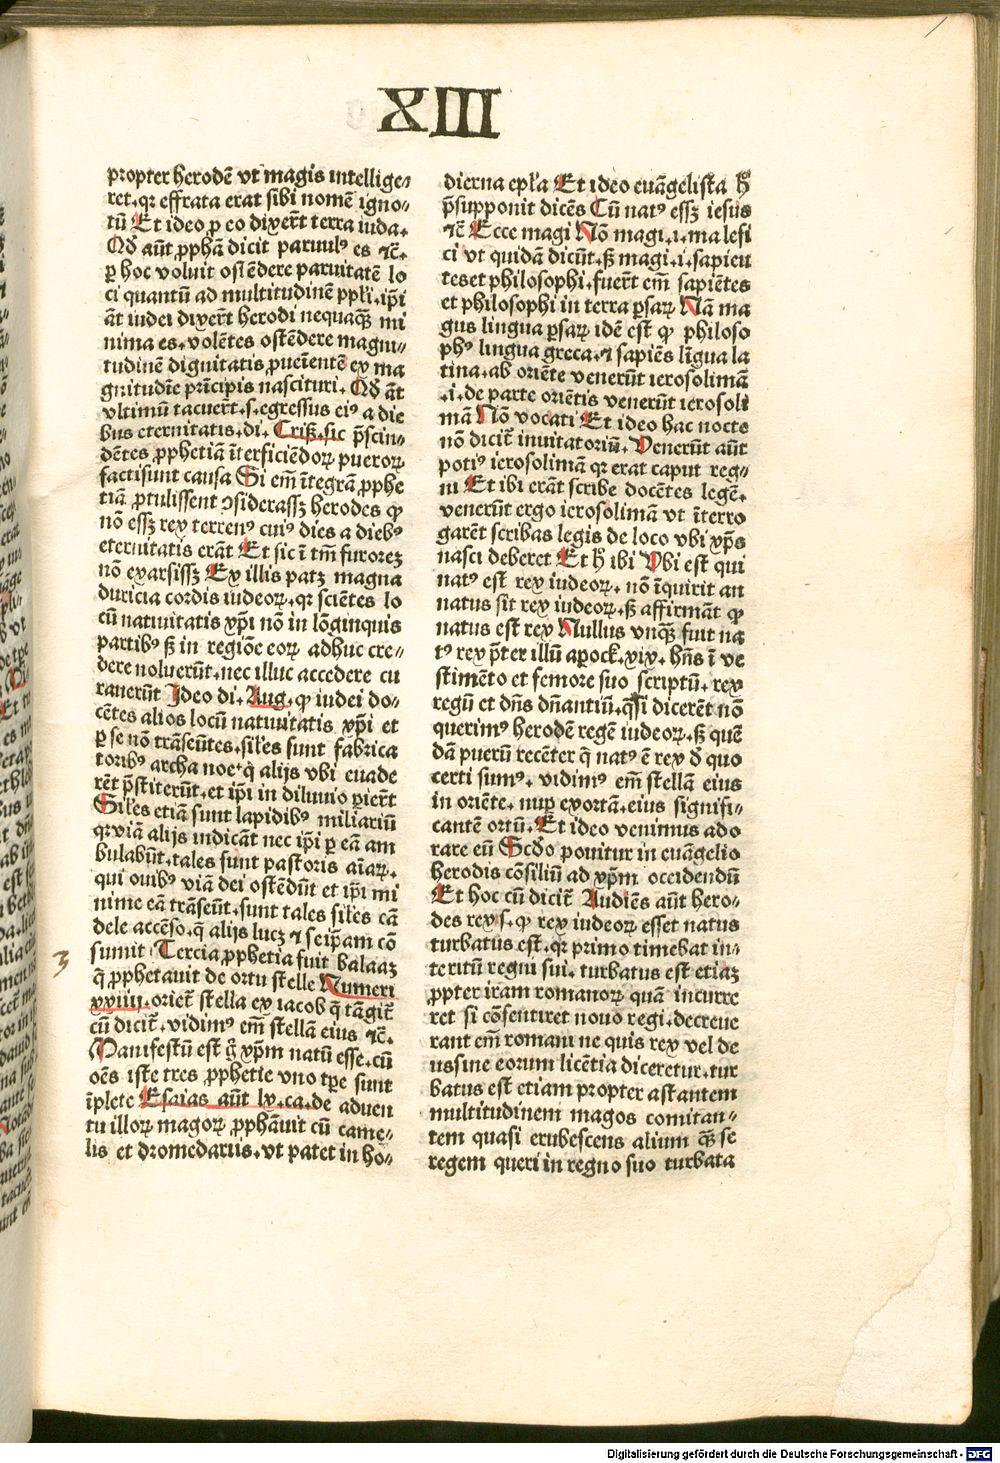 XIII
propter herodē vt magis intellige⸗
ret. qr effrata erat sibi nomē igno⸗
tū Et ideo ꝑ eo dixerūt terra iuda.
Qd̄ aūt ꝓphā dicit paruulꝰ es ⁊c̄.
ꝑ hoc voluit ostēdere paruitatē lo
ci quantū ad multitudinē ppl̄i. ip̄i
āt iudei dixerūt herodi nequaqͣꝫ mi
nima es. volētes ostēdere magni⸗
tudinē dignitatis ꝓueīentē ex ma
gnitudīe prīcipis nascituri. Qd̄ āt
vltimū tacuerūt. s. egressus eiꝰ a die
bus eternitatis. di. Criß. sic p̄scin⸗
dētes ꝓphetiā īterficiēdoꝝ pueroꝝ
facti sunt causa Si em̄ ītegrā ꝓphe
tiā ꝓtulissent ꝯsiderassꝫ herodes ꝙ
nō essꝫ rex terrenꝰ cuiꝰ dies a diebꝰ
eternitatis erāt Et sic ī tm̄ furorēꝫ
nō exarsissꝫ Ex illis patꝫ magna
duricia cordis iudeoꝝ. qr sciētes lo
cū natiuitatis xp̄i nō in lōginquis
partibꝰ ß in regiōe eoꝝ adhuc cre⸗
dere noluerūt. nec illuc accedere cu
rauerūt Ideo di. Aug. ꝙ iudei do⸗
cētes alios locū natiuitatis xp̄i et
ꝑ se nō trāseūtes. sil̄es sunt fabrica
toribꝰ archa noe. q̄ alijs vbi euade
rēt p̄stiterūt. et ip̄i in diluuio ꝑierūt
Sil̄es etiā sunt lapidibꝰ miliariū
qr viā alijs indicāt nec ip̄i ꝑ eā am
bulabūt. tales sunt pastoris aīaꝝ.
qui ouibꝰ viā dei ostēdūt et ip̄i mi
nime eā trāseūt. sunt tales sil̄es cā
dele accēso. q̄ alijs lucꝫ ⁊ seip̄am cō
sumit Tercia ꝓphetia fuit balaaꝫ
3
q̄ ꝓphetauit de ortu stelle Numeri
xxiiij. oriet̄ stella ex iacob q̄ tāgit̄
cū dicit̄. vidimꝰ em̄ stellā eius ⁊c̄.
Manifestū est g̊ xp̄m natū esse. cū
oēs iste tres ꝓphetie vno tꝑe sunt
īplete Esaias aūt lx. ca. de aduen
tu illoꝝ magoꝝ ꝓphāuit cū came⸗
lis et dromedariis. vt patet in ho⸗
dierna epl̄a Et ideo euāgelista h̄
p̄supponit dicēs Cū natꝰ essꝫ iesus
⁊c̄ Ecce magi Nō magi. i. malefi
ci vt quidā dicūt. ß magi. i. sapien
tes et philosophi. fuerūt em̄ sapiētes
et philosophi in terra ꝑsaꝝ Nā ma
gus lingua ꝑsaꝝ idē est ꝙ philoso
phꝰ lingua greca. ⁊ sapiēs līgua la
tina. ab oriēte venerūt ierosolimā
. i. de parte oriētis venerūt ierosoli
mā Nō vocati Et ideo hac nocte
nō dicit̄ inuitatoriū. Venerūt aūt
potiꝰ ierosolimā qr erat caput reg⸗
ni Et ibi erāt scribe docētes legē.
venerūt ergo ierosolimā vt īterro
garēt scribas legis de loco vbi xp̄s
nasci deberet Et h̄ ibi Vbi est qui
natꝰ est rex iudeoꝝ. nō īquirit an
natus sit rex iudeoꝝ. ß affirmāt ꝙ
natus est rex Nullus vnqͣꝫ fuit na
tꝰ rex p̄ter illū apock. xix. hn̄s ī ve
stimēto et femore suo scriptū. rex
regū et dn̄s dn̄antiū. qͣsi dicerēt nō
querimꝰ herodē regē iudeoꝝ. ß quē
dā puerū recēter q̄ natꝰ ē rex d̄ quo
certi sumꝰ. vidimꝰ em̄ stellā eius
in oriēte. nuꝑ exortā. eius signifi⸗
cantē ortū. Et ideo venimus ado
rare eū Scd̄o ponitur in euāgelio
herodis cōsiliū ad xp̄m occidendū
Et hoc cū dicit̄ Audiēs aūt hero⸗
des rex s. ꝙ rex iudeoꝝ esset natus
turbatus est. qr primo timebat in⸗
teritū regni sui. turbatus est etiaꝫ
ꝓpter iram romanoꝝ quā incurre
ret si cōsentiret nouo regi. decreue
rant em̄ romani ne quis rex vel de
us sine eorum licētia diceretur. tur
batus est etiam propter astantem
multitudinem magos comitan⸗
tem quasi erubescens alium qͣꝫ se
regem queri in regno suo turbata
Digitalisierung gefördert durch die Deutsche Forschungsgemeinschaft - DFG